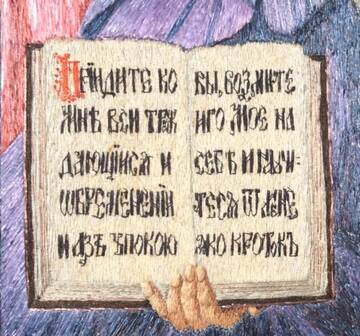 Прїидите ко
мнѣ вси трꙋж
дающїися и
ѡбремененїи
и азъ ѹпокою
вы, возмите
иго мое на
себѣ и наꙋчи
теся ѿ мене
яко кротокъ